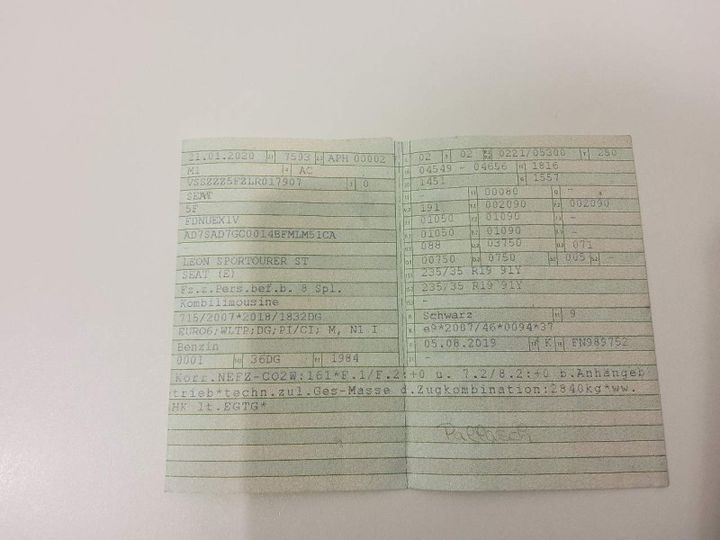 21.01.2020 7593 APH 00002
M1 AC
VSSZZZ5FZLR017907 0
SEAT
5F
FDNUEX1V
AD7SAD7GC0014BFMLM51CA
-
LEON SPORTOURER ST
SEAT (E)
Fz.z.Pers.bef.b. 8 Spl.
Kombilimousine
715/2007*2018/1832DG
EURO6;WLTP;DG;PI/CI; M, N1 I
Benzin
0001 36DG 1984
02 02 0221/05300 250
04549 - 04656 1816
1451 1557
- 00080 -
191 002090 002090
01050 01090 -
01050 01090 -
088 03750 071
00750 0750 005 -
235/35 R19 91Y
235/35 R19 91Y
-
Schwarz 9
e9*2007/46*0094*37
05.08.2019 K FN989752
-
Korr.NEFZ-CO2W:161*F.1/F.2:+0 u. 7.2/8.2:+0 b.Anhängeb
trieb*techn.zul.Ges-Masse d.Zugkombination:2840kg*ww.
HK lt.EGTG*